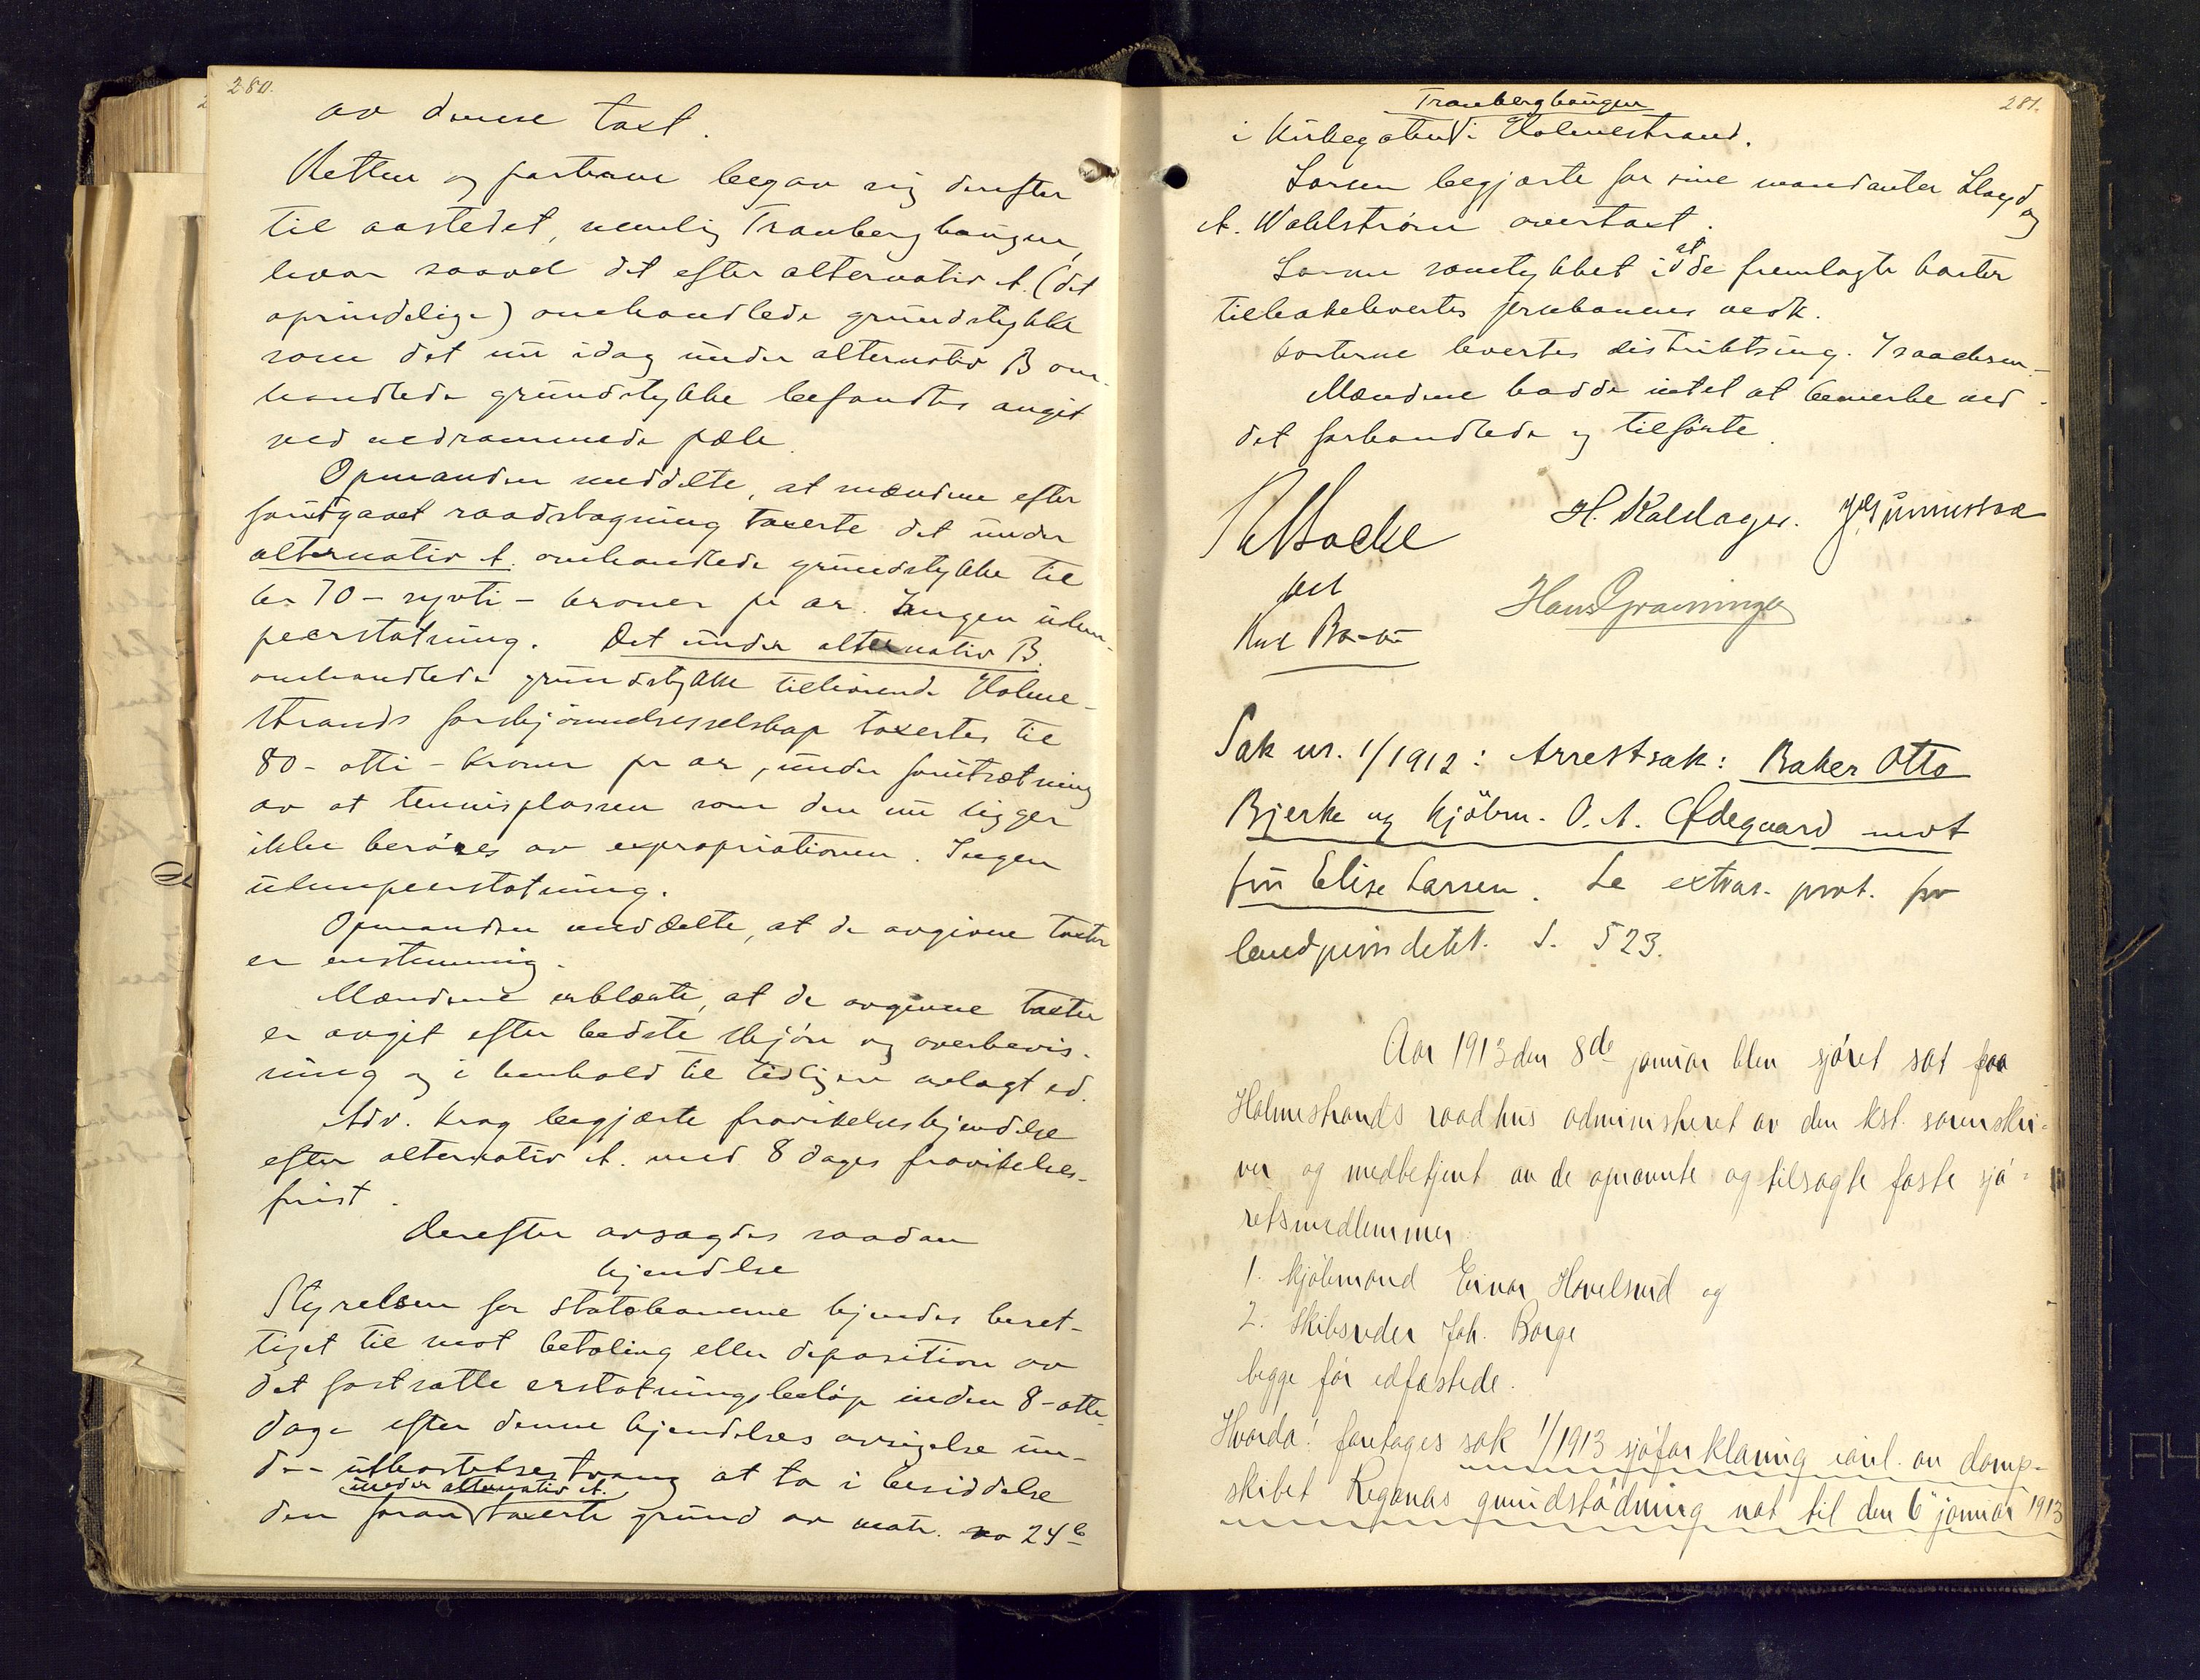 280.
av denne taxt.
Retten og parterne begav sig derefter
til aastedet, nemlig Tranberghaugen,
hvor saavel det efter alternativ A. (det
oprindelige) omhandlede grundstykke
som det nu idag under alternativ B om-
handlede grundstykke befandtes angit
ved nedrammede pæle.
Opmanden meddelte, at mændene efter
forutgaaet raadslagning taxerte det under
alternativ A. omhandlede grundstykke til
kr 70 - sytti - kroner pr ar. Ingen ulem-
peerstatning. Det under alternativ B.
omhandlede grundstykke tilhørende Holme-
strands forskjønnelsesselskap taxertes til
80 - otti - kroner pr ar, under forutsætning
av at tennisplassen som den nu ligger
ikke berøres av expropriationen. Ingen
ulempeerstatning.
Opmanden meddelte, at de avgivne taxter
er enstemmig.
Mændene erklærte, at de avgivne taxter
er avgit efter bedste skjøn og overbevis-
ning og i henhold til tidligere avlagt ed.
Adv. Krag begjærte fravikelseskjendelse
efter alternativ A. med 8 dages fravikelses-
frist.
Derefter avsagdes saadan
kjendelse
Styrelsen for Statsbanerne kjendes beret-
tiget til mot betaling eller deposition av
det fastsatte erstatningsbeløp inden 8 - otte
dage efter denne kjendelses avsigelse un-
der utkastelsestvang at ta i besiddelse
under alternativ A.
den foran taxerte grund av matr. no 24b
281.
Tranberghaugen
i Kirkegaten i Holmestrand.
Larsen begjærte for sine mandanter Lloyd og
A. Wahlstrøm overtaxt.
Larsen samtykket i at de fremlagte karter
tilbakelevertes jernbanens vedk.
Karterne levertes distriktsing. Traadsen.
Mændene hadde intet at bemerke ved
det forhandlede og tilførte.
H. Kaldager.
Hans Gravninger
Sak nr. 1/1912: Arrestsak: Baker Otto
Bjerke og kjøbm. O. A. Ødegaard mot
fru Elise Larsen. Se extrar. prot. for
landjurisdikt. S. 523.
Aar 1913 den 8de januar blev sjøret sat paa
Holmestrands raadhus administreret av den kst. sorenskri-
ver og medbetjent av de opnævnte og tilsagte faste sjø-
retsmedlemmer:
1. kjøbmand Einar Hovelsrud og
2. Skibsreder Joh. Borge
begge før edfæstede.
Hvorda! foretages sak 1/1913 sjøforklaring i anl. av damp-
skibet Reganas grundstødning nat til den 6te januar 1913